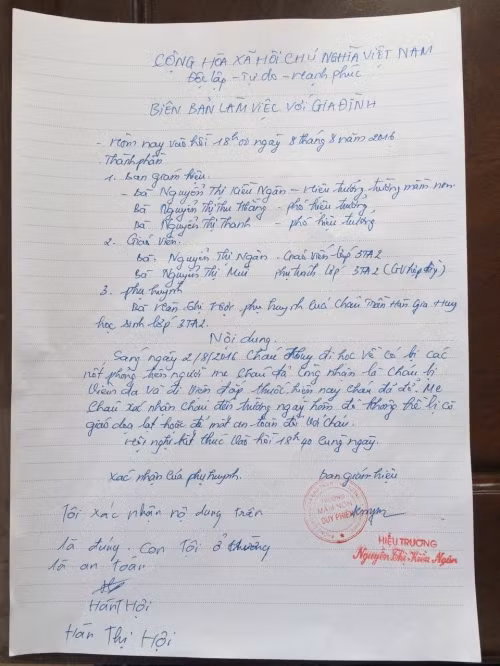 CỘNG HÒA XÃ HỘI CHỦ NGHĨA VIỆT NAM
Độc lập - Tự do - Hạnh phúc
BIÊN BẢN LÀM VIỆC VỚI GIA ĐÌNH
- Hôm nay vào hồi 18h00 ngày 8 tháng 8 năm 2016
Thành phần
1. Ban giám hiệu.
- Bà Nguyễn Thị Kiều Ngân - Hiệu trưởng trường mầm non.
Bà Nguyễn Thị Thu Thắng - phó hiệu trưởng
Bà Nguyễn Thị Thanh - phó hiệu trưởng
2. Giáo viên.
Bà. Nguyễn Thị Ngân - Giáo viên lớp 3TA2
Bà Nguyễn Thị Mùi phụ trách lớp 3TA2 (GV hợp đồng)
3. phụ huynh
Bà Hán Thị phụ huynh của cháu Trần Hán Gia Huy
học sinh lớp 3TA2.
Nội dung.
Sáng ngày 2/8/2016 cháu Huy đi học về có bị các
nốt phỏng trên người mẹ cháu đã công nhận là cháu bị
viêm da và đi viện đắp thuốc hiện nay cháu đã đỡ. Mẹ
cháu xác nhận cháu đến trường ngày hôm đó không hề bị cô
giáo dọa nạt hoặc để mất an toàn đối với cháu.
Hội nghị kết thúc vào hồi 18h90 cùng ngày.
xác nhận của phụ huynh. ban giám hiệu
TRƯỜNG
MẦM NON
DUY PHIÊN
HIỆU TRƯỞNG
Nguyễn Thị Kiều Ngân
Tôi xác nhận nộ dung trên
là đúng. Con Tôi ở trường
là an toàn
Hán T Hội
Hán Thị Hội